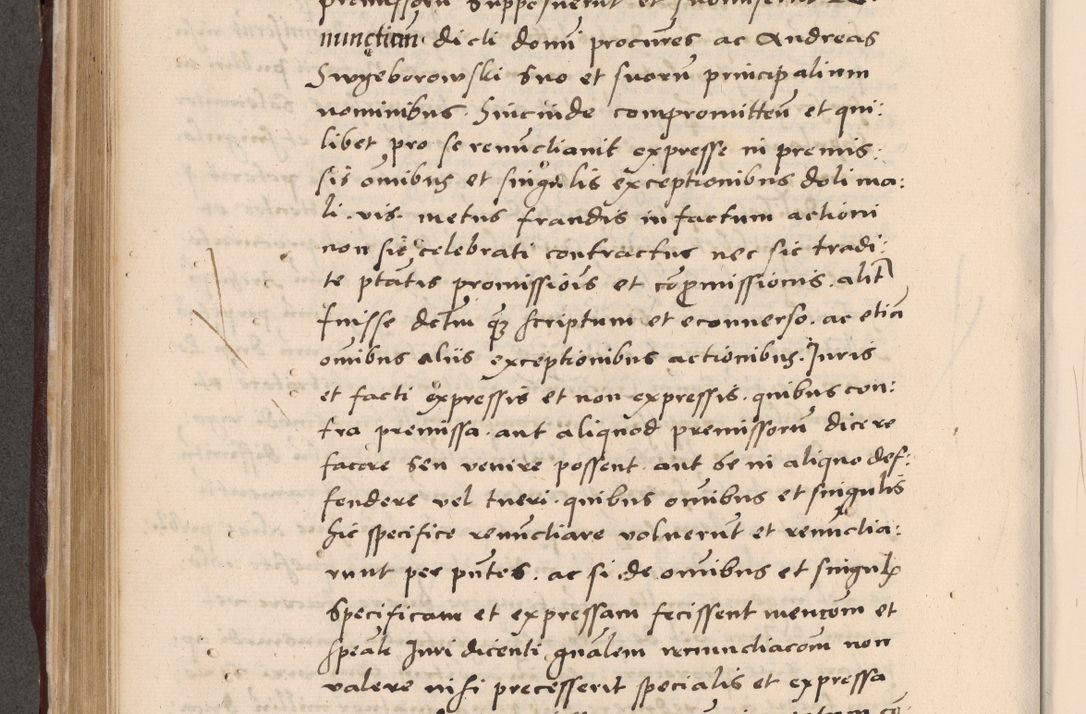 premissoru supposuerut et
nunctium dicti domi procures ac Andreas
Swyeborowski suo et suoru principalium
nominibus. hincinde compromitteu et qui:
libet pro se renuctiavit expresse in premis:
sis omibus et singulis exceptionibus doli ma:
li. vis. metus fraudis in factum actioni
non sic celebrati contractus nec sic tradi:
te ptatis promissiois et copmissionis. alit
fuisse dctm qz scriptum et econverso. ac etia
omibus aliis exceptionibus actionibus. Juris
et facti expressis et non expressis. quibus con:
tra premissa. aut aliquod premissoru dicere
facere seu venire possent. aut se in aliquo def:
fendere vel tueri. quibus omibus et singulis
hic specifice renuctiare voluerut et renuctia:
runt per pntes. ac si de omibus et singul
specificam et expressam fecissent mencom et
speale Juri dicenti gnalem renunctiacom non
valere nisi precesserit specialis et expressa